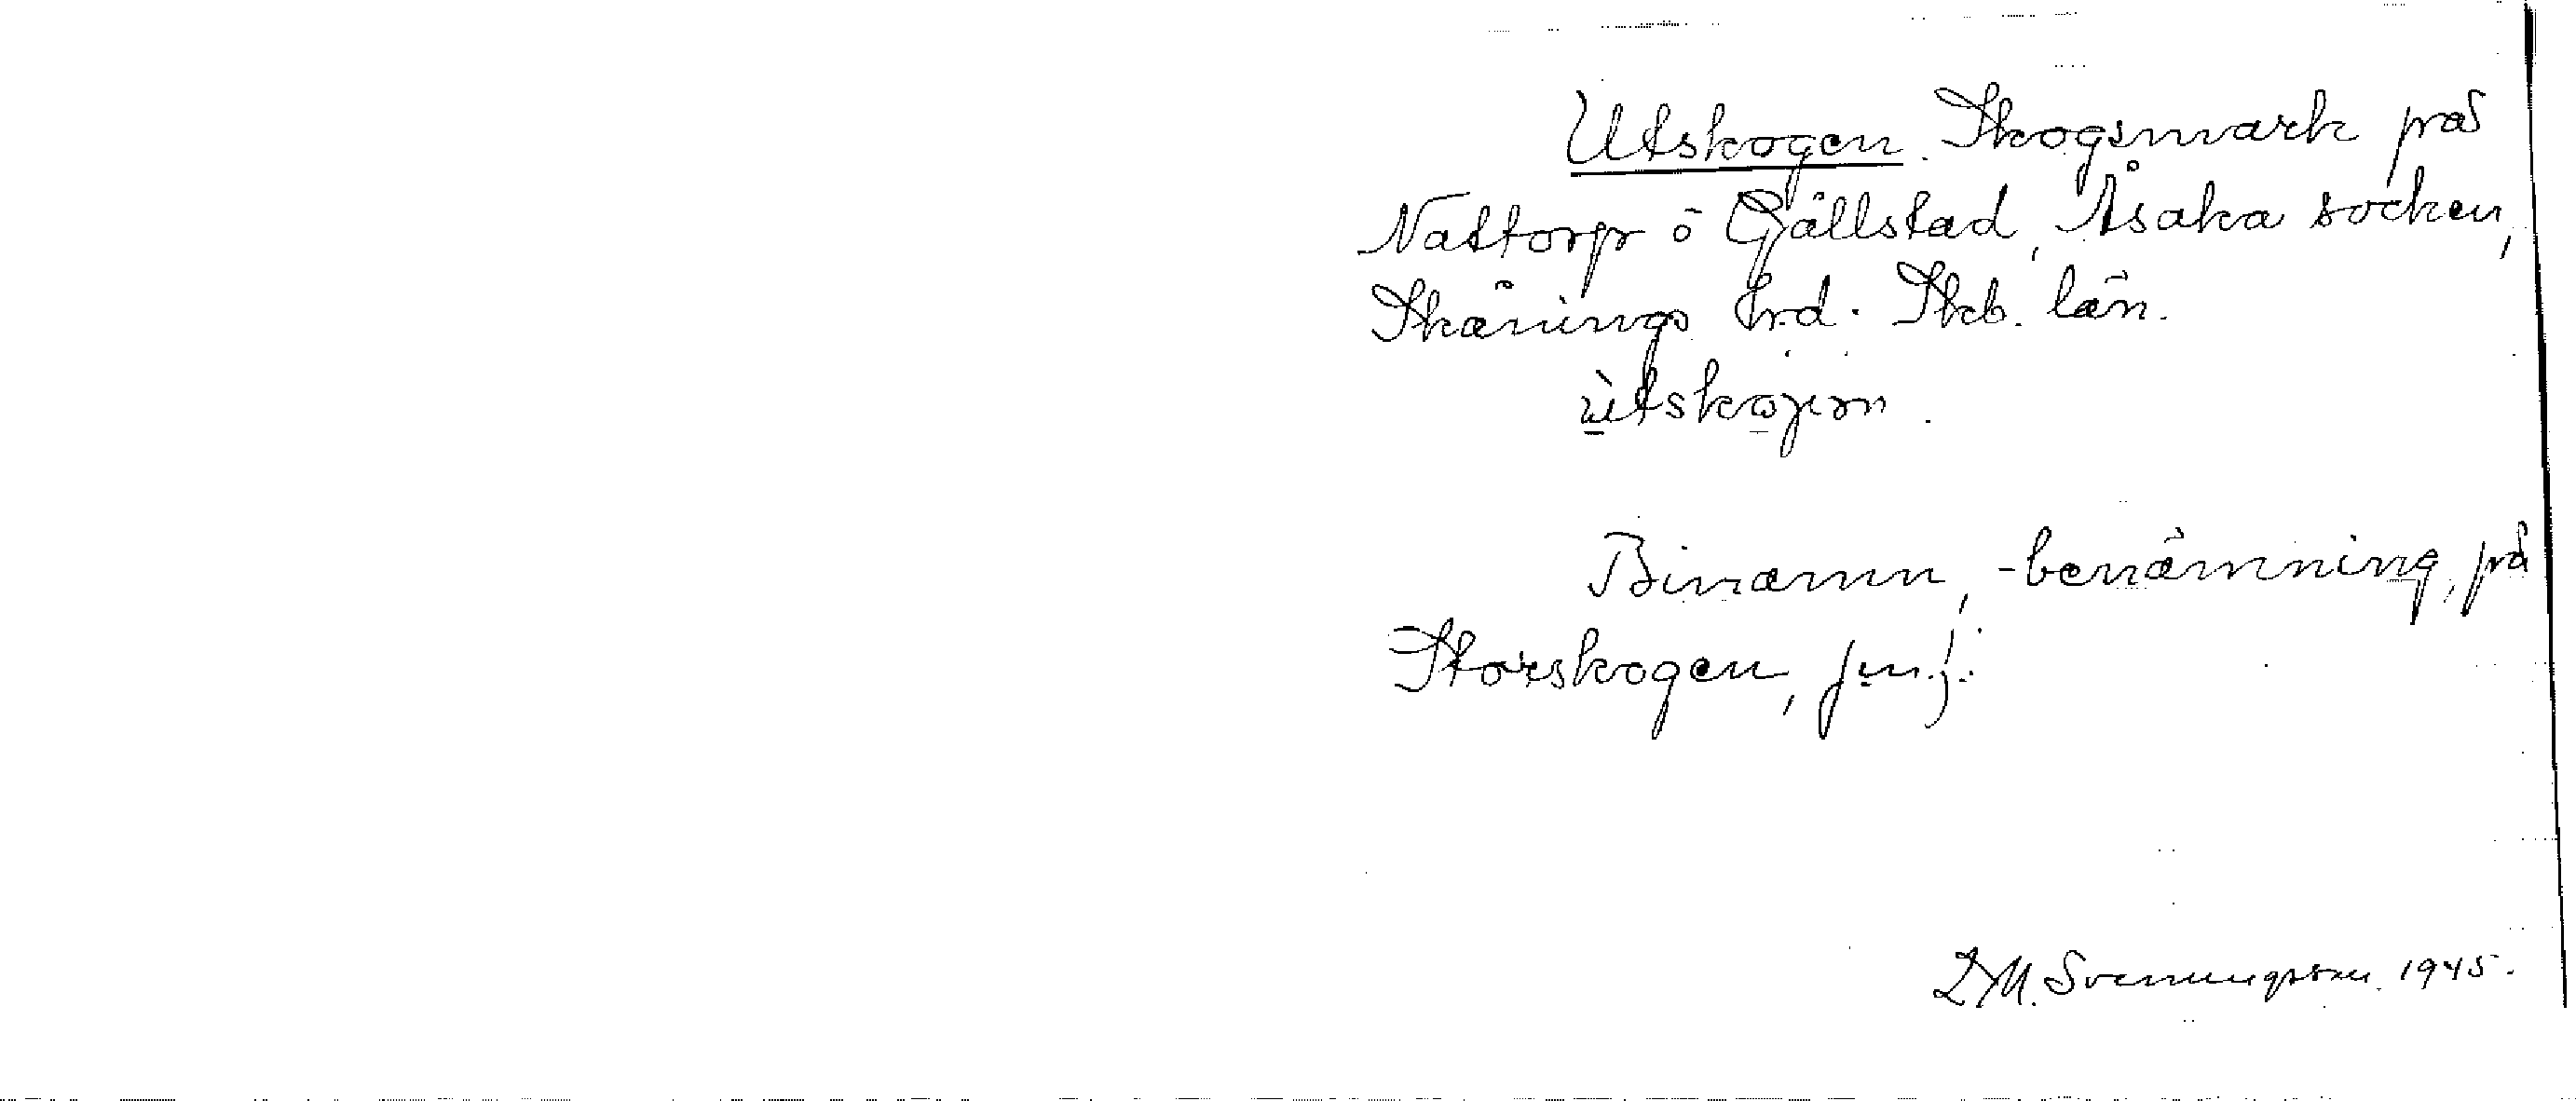 Utskogen. Skogsmark på
Nattorp o Gällstad, Åsaka socken,
Skånings hrd. Skb. län.
ùtskoγιαn.
Binamn, -benämning, på
Storskogen, jmf.
L. M. Svenungsson 1945.